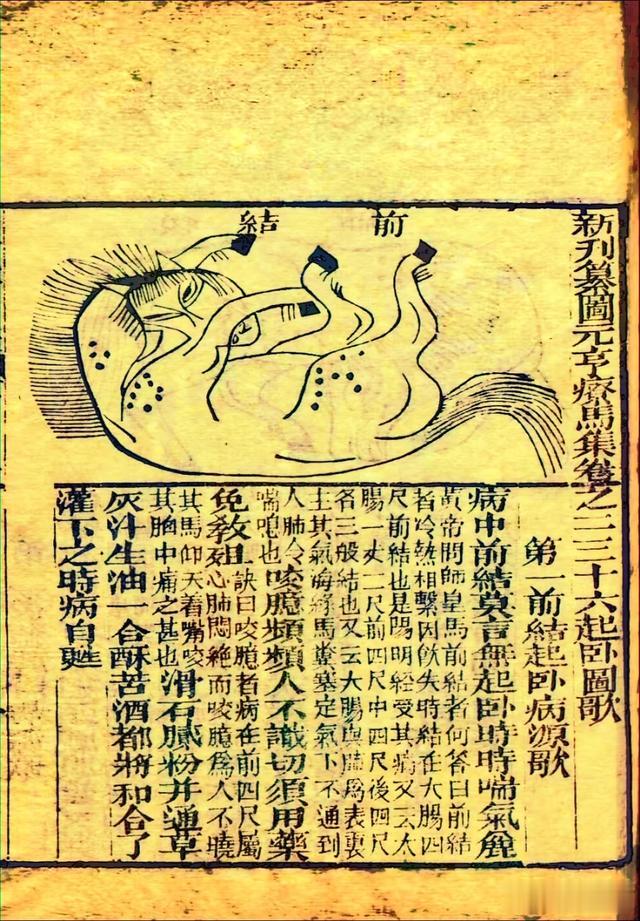 新刋纂圖元亨療馬集卷之二三十六起卧圖歌
前結
第一前結起卧病源歌
病中前結莫言無起卧時時喘氣麄
黃帝問師皇馬前結者何答曰前結
者冷熱相擊因飲失時結在大腸四
尺前結也是陽明經受其病又云大
腸一丈二尺前四尺中四尺後四尺
各三般結也又云大腸與肺爲表裏
主其氣海緣馬糞塞定氣下不通到
人肺令
喘息也
咬臆頻頻人不識切須用藥
免教殂
訣曰咬臆者病在前四尺屬
死心肺悶絕而咬臆爲人不曉
其馬仰天着嘴咬
其胸中痛之甚也
滑石膩粉并通草
灰汁生油一合酥苦酒都將和合了
灌下之時病自甦